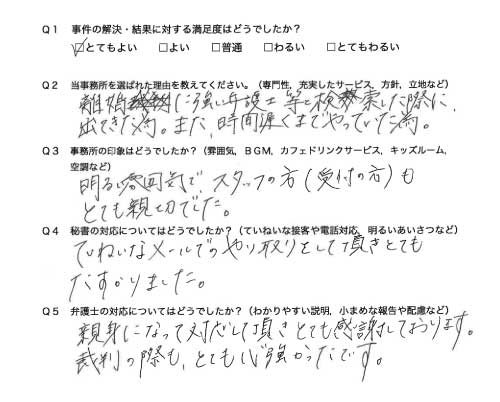 Q1 事件の解決・結果に対する満足度はどうでしたか？
☑とてもよい □よい □普通 □わるい □とてもわるい
Q2 当事務所を選ばれた理由を教えてください。（専門性，充実したサービス，方針，立地など）
離婚に強い弁護士等と検索した際に、
出てきた為。また、時間遅くまでやっていた為。
Q3 事務所の印象はどうでしたか？（雰囲気，BGM，カフェドリンクサービス，キッズルーム，
空調など）
明るい雰囲気で、スタッフの方（受付の方）も
とても親切でした。
Q4 秘書の対応についてはどうでしたか？（ていねいな接客や電話対応，明るいあいさつなど）
ていねいなメールでのやり取りをして頂きとても
たすかりました。
Q5 弁護士の対応についてはどうでしたか？（わかりやすい説明，小まめな報告や配慮など）
親身になって対応して頂きとても感謝しております。
裁判の際も、とても心強かったです。